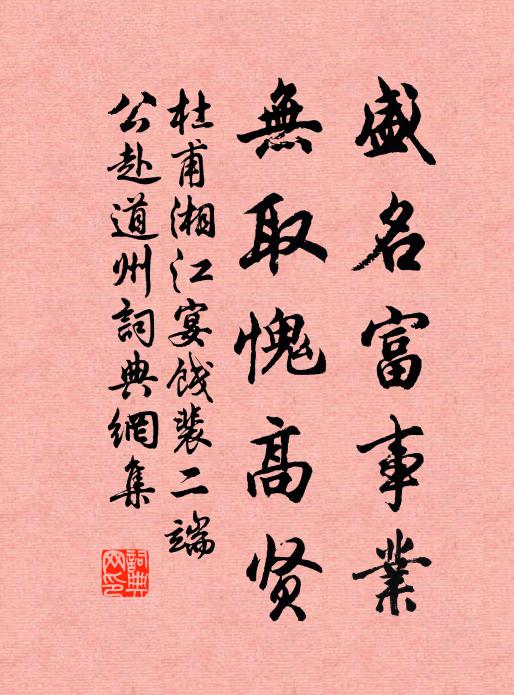 盛名富事業
無取愧高贤
杜甫湘江宴餞裴二端
公赴道州詞典網集
詞典网印